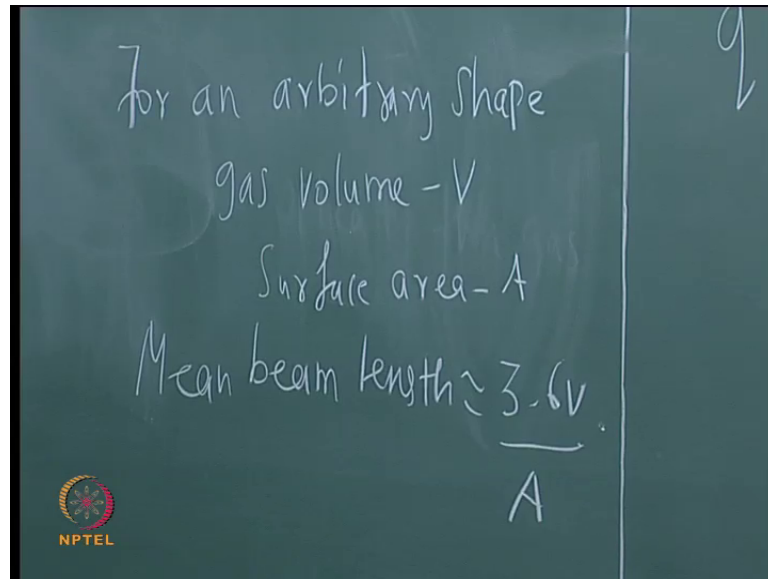 For an arbitrary shape
gas volume - V
Surface area - A
Mean beam length ≈ 3.6V
A
q
NPTEL